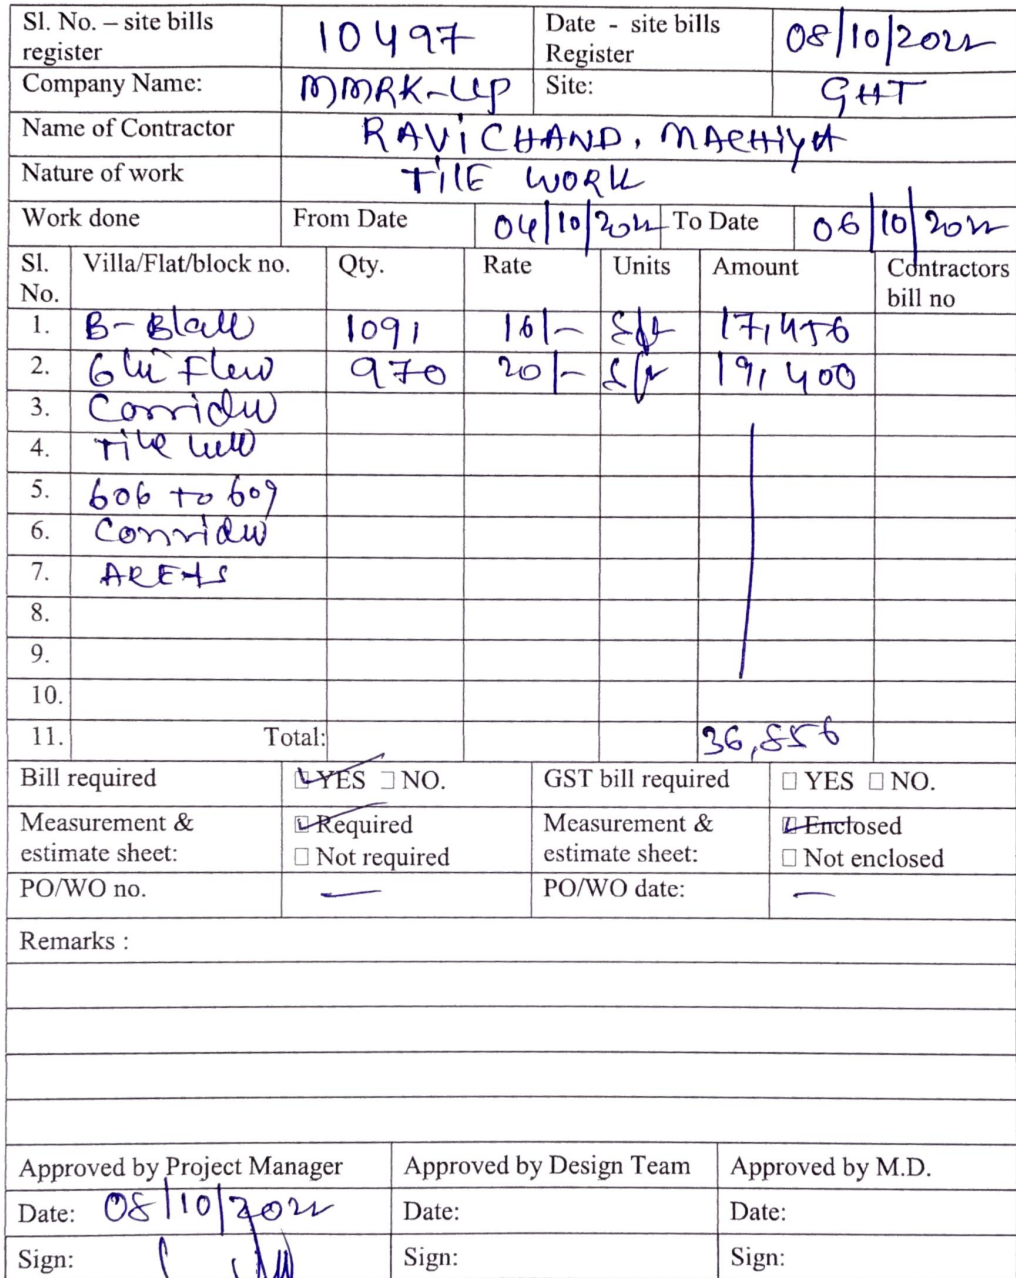 Sl. No. – site bills register 10497 Date - site bills Register 08/10/2022
Company Name: MMRK-LLP Site: GHT
Name of Contractor RAVi CHAND. MACHIYA
Nature of work TilE WORK
Work done From Date 04/10/2022 To Date 06/10/2022
Sl. No. Villa/Flat/block no. Qty. Rate Units Amount Contractors bill no
1. B-Block 1091 16/- Sft 17,456
2. 6th Floor 970 20/- Sft 19,400
3. Corridor
4. Tile
5. 606 to 609
6. Corridor
7. AREAS
8.
9.
10.
11. Total: 36,856
Bill required YES NO. GST bill required YES NO.
Measurement & estimate sheet: Required Not required Measurement & estimate sheet: Enclosed Not enclosed
PO/WO no. — PO/WO date: —
Remarks :
Approved by Project Manager Approved by Design Team Approved by M.D.
Date: 08/10/2022 Date: Date:
Sign: Sign: Sign: